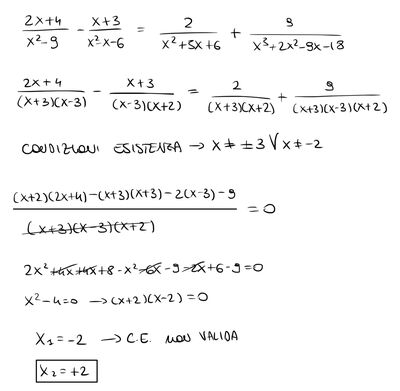 (2x+4)/(x²-9) - (x+3)/(x²-x-6) = 2/(x²+5x+6) + 9/(x³+2x²-9x-18)
(2x+4)/((x+3)(x-3)) - (x+3)/((x-3)(x+2)) = 2/((x+3)(x+2)) + 9/((x+3)(x-3)(x+2))
CONDIZIONI ESISTENZA → x ≠ ±3 V x ≠ -2
((x+2)(2x+4)-(x+3)(x+3)-2(x-3)-9)/((x+3)(x-3)(x+2)) = 0
2x²+4x+4x+8-x²-6x-9-2x+6-9=0
x²-4=0 → (x+2)(x-2)=0
x₁=-2 → C.E. NON VALIDA
x₂=+2